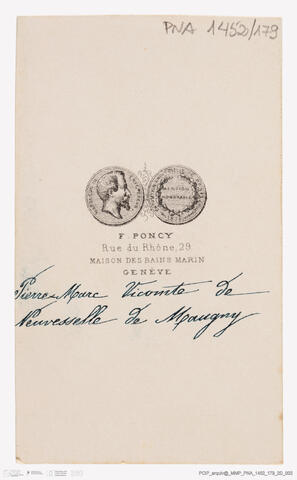 PNA 1452/179
MENTION
HONORABLE
F. PONCY
Rue du Rhône, 29.
MAISON DES BAINS MARIN
GENÈVE
Pierre-Marc Vicomte de
Neuvesselle de Maugny
PCIP_arquiv@_MMP_PNA_1452_179_2D_V03